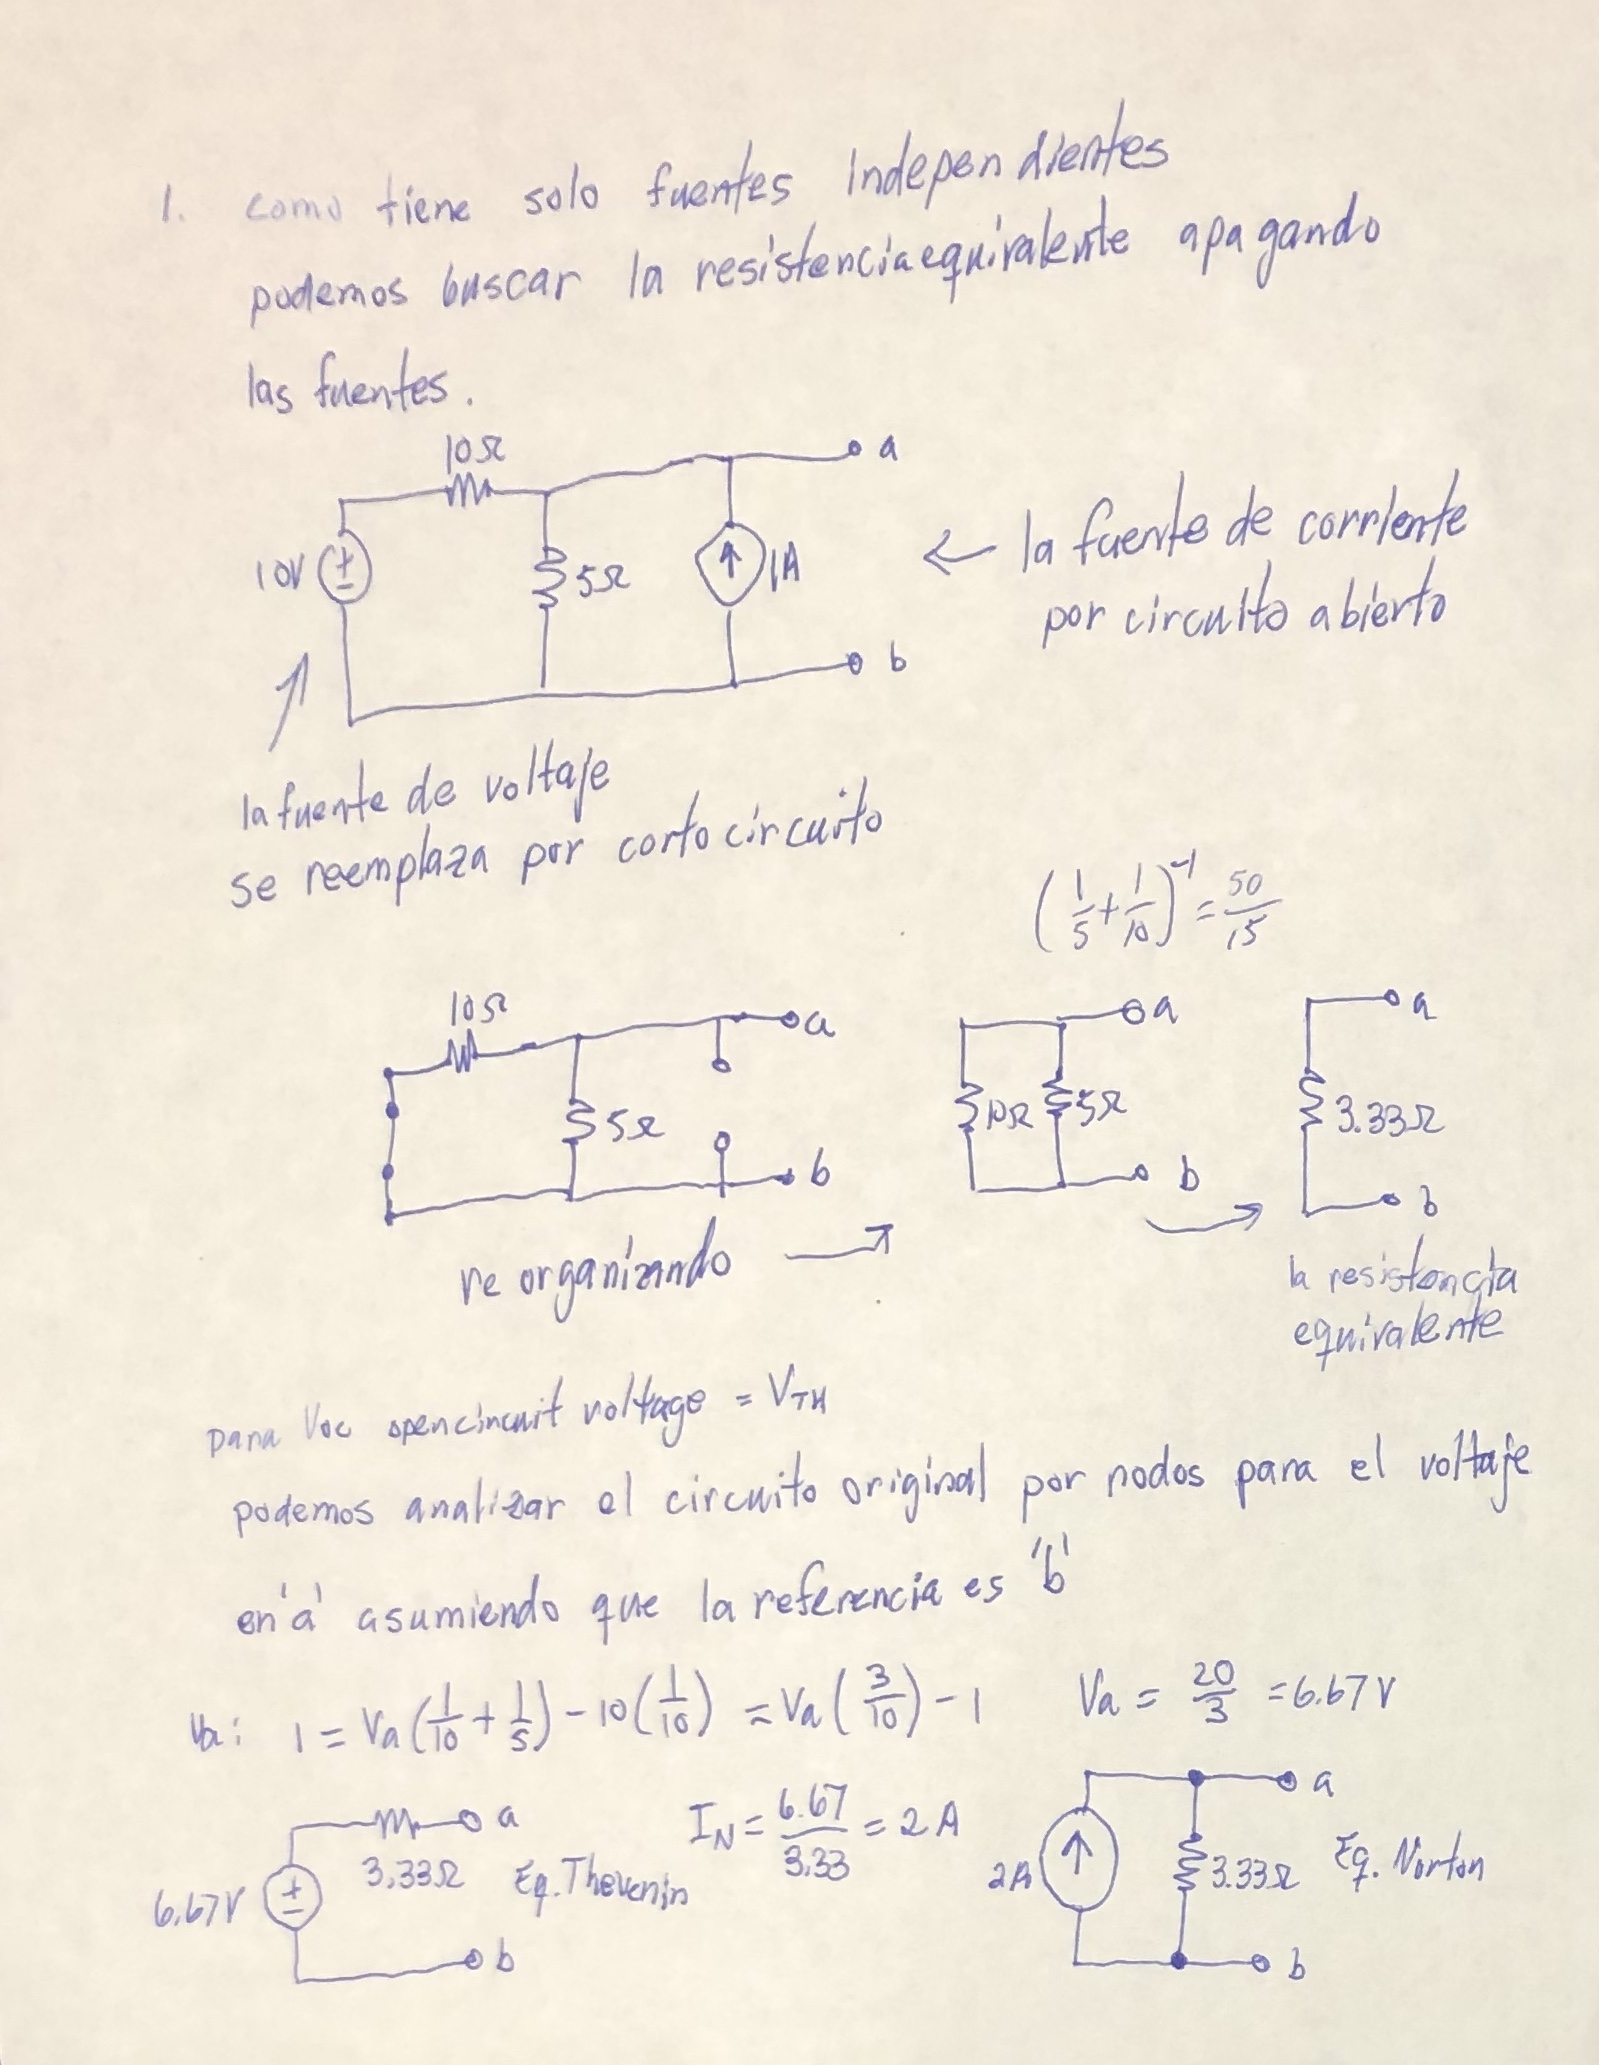 1. como tiene solo fuentes Independientes
podemos buscar la resistencia equivalente apagando
las fuentes.
10Ω
a
10V
+
-
5Ω
1A
← la fuente de corriente
por circuito abierto
b
la fuente de voltaje
se reemplaza por corto circuito
(1/5 + 1/10)^-1 = 50/15
10Ω
a
5Ω
b
a
10Ω
5Ω
b
a
3.33Ω
b
re organizando →
la resistencia
equivalente
para Voc opencircuit voltage = VTH
podemos analizar el circuito original por nodos para el voltaje
en 'a' asumiendo que la referencia es 'b'
Va: 1 = Va(1/10 + 1/5) - 10(1/10) = Va(3/10) - 1 Va = 20/3 = 6.67V
a
3.33Ω
6.67V
+
-
Eq. Thevenin
b
IN = 6.67/3.33 = 2A
a
2A
3.33Ω
Eq. Norton
b